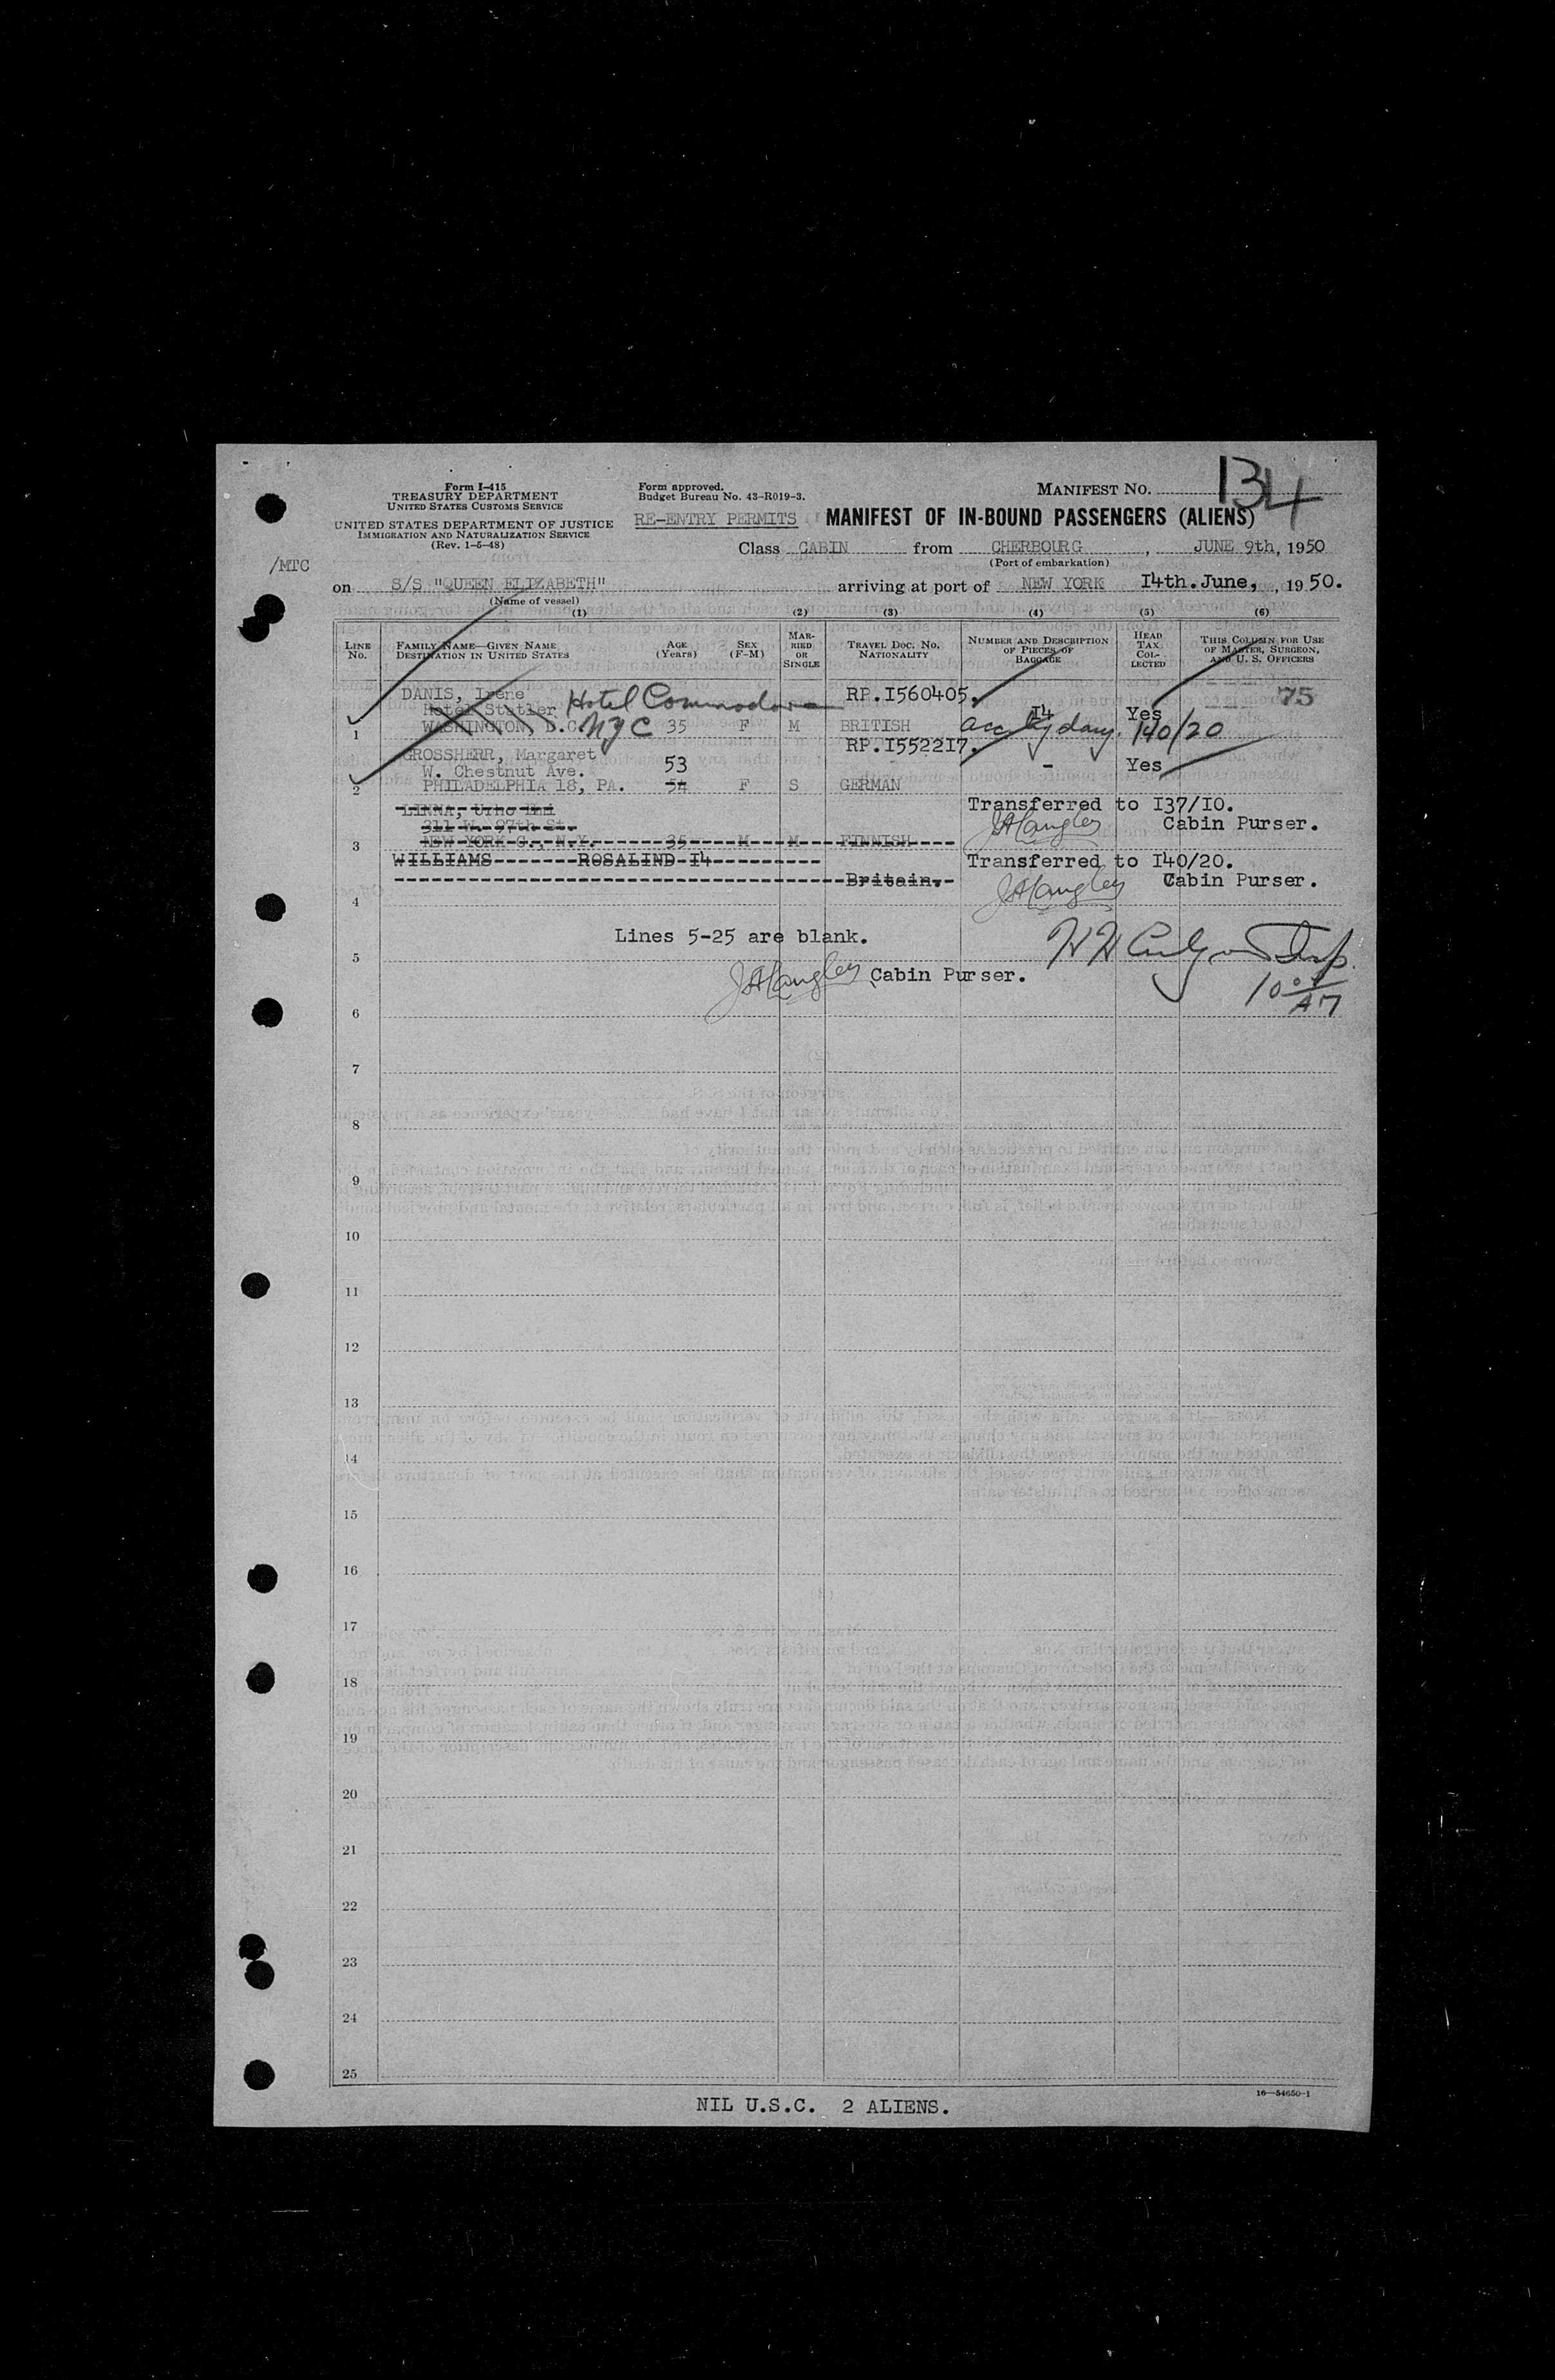 134
Form I-415
TREASURY DEPARTMENT
UNITED STATES CUSTOMS SERVICE
Form approved.
Budget Bureau No. 43-R019-3.
MANIFEST NO.
UNITED STATES DEPARTMENT OF JUSTICE
IMMIGRATION AND NATURALIZATION SERVICE
(Rev. 1-5-48)
RE-ENTRY PERMITS MANIFEST OF IN-BOUND PASSENGERS (ALIENS)
Class CABIN from CHERBOURG, JUNE 9th, 1950
(Port of embarkation)
/MTC
on S/S "QUEEN ELIZABETH" arriving at port of NEW YORK I4th. June, , 1950.
(Name of vessel)
(1) (2) (3) (4) (5) (6)
LINE No. FAMILY NAME—GIVEN NAME DESTINATION IN UNITED STATES AGE (Years) SEX (F-M) MARRIED OR SINGLE TRAVEL DOC. NO. NATIONALITY NUMBER AND DESCRIPTION OF PIECES OF BAGGAGE HEAD TAX COLLECTED THIS COLUMN FOR USE OF MASTER, SURGEON, AND U. S. OFFICERS
DANIS, Irene RP.I560405. 75
Hotel Statler Hotel Commodore I4 Yes
1 WASHINGTON, D.C. NYC 35 F M BRITISH acc by dau. 140/20
GROSSHERR, Margaret RP.I5522I7.
W. Chestnut Ave. 53 - Yes
2 PHILADELPHIA 18, PA. 54 F S GERMAN
LINNA, Urho Transferred to I37/I0.
311 W. 97th St. JALangley Cabin Purser.
3 NEW YORK C., N.Y. 35 M M FINNISH
WILLIAMS ROSALIND I4 Transferred to I40/20.
Britain. JALangley Cabin Purser.
4
Lines 5-25 are blank.
5
JALangley Cabin Purser.
6
7
8
9
10
11
12
13
14
15
16
17
18
19
20
21
22
23
24
25
16—54650-1
NIL U.S.C. 2 ALIENS.